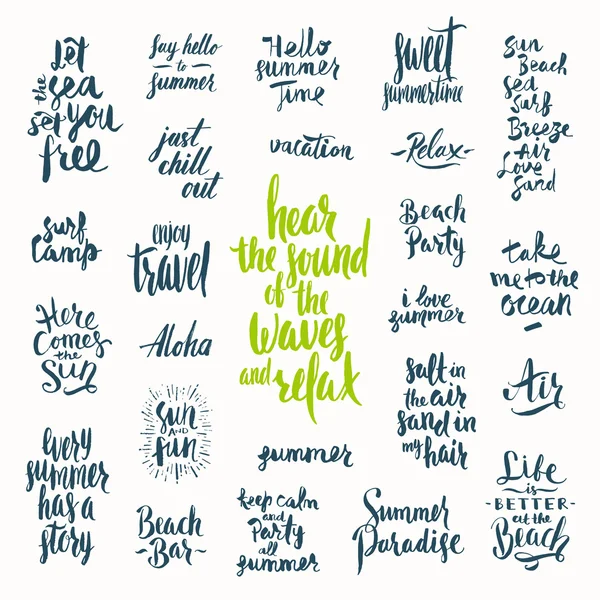 Let
the sea
set you
free
Say hello
to
summer
Hello
summer
Time
sweet
summertime
Sun
Beach
Sea
Surf
Breeze
Air
Love
Sand
just
chill
out
vacation
-Relax-
surf
camp
enjoy
travel
hear
the sound
of the
waves
and relax
Beach
Party
take
me to the
ocean
Here
Comes
the
Sun
Aloha
i love
summer
Sun
AND
fun
salt in
the air
sand in
my hair
Air
every
summer
has a
story
summer
Life
is
-BETTER-
at the
Beach
Beach
~Bar~
keep calm
and
Party
all
summer
Summer
Paradise